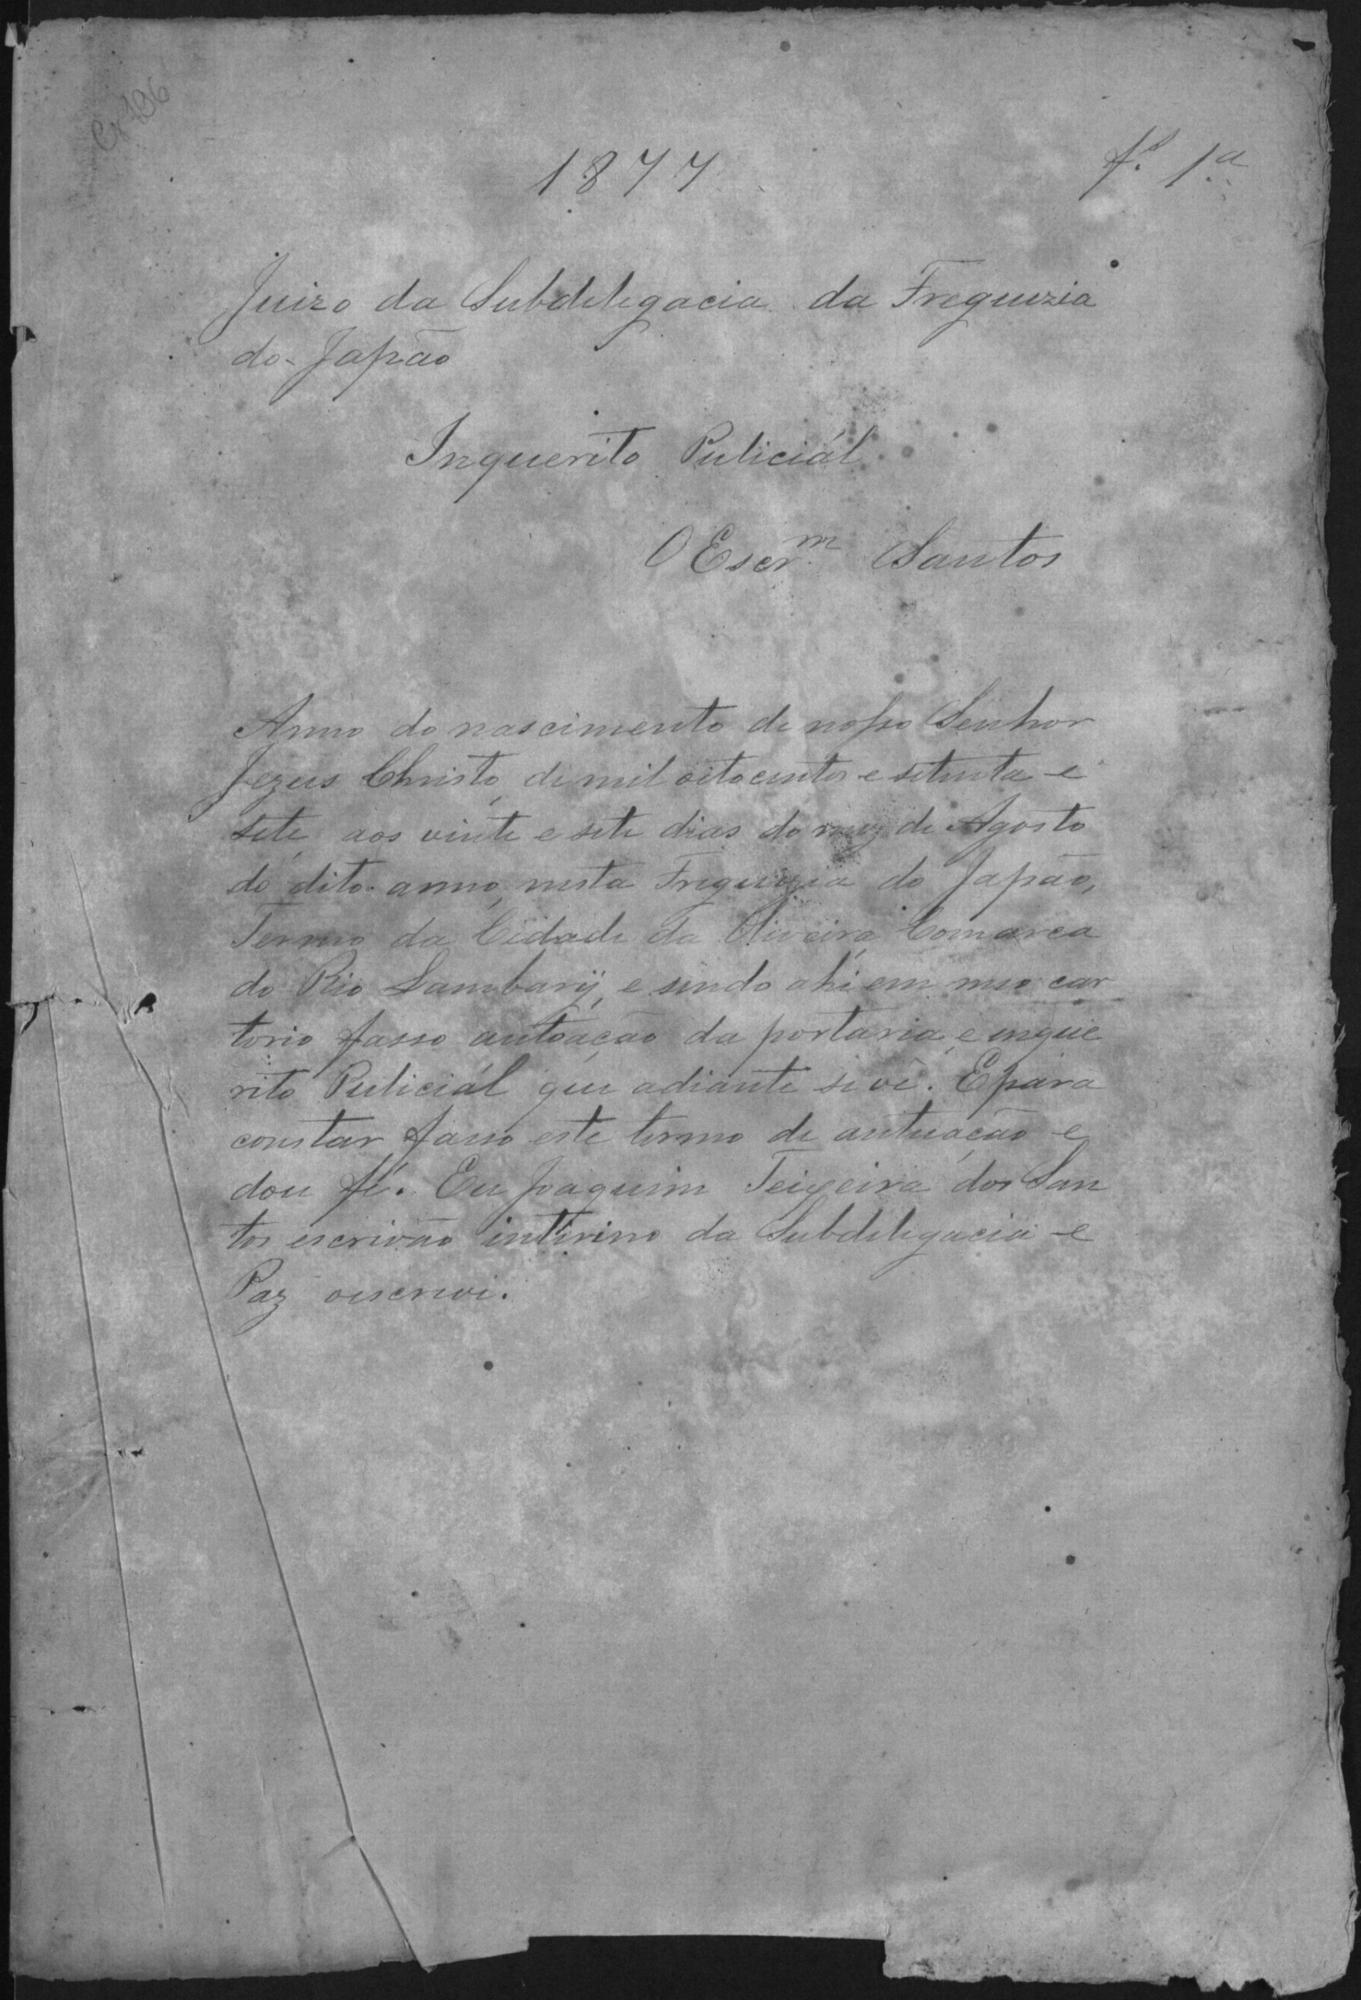 Cx 486
1877
fs. 1.a
Juizo da Subdelegacia da Freguezia
do Japão
Inquerito Puliciál
O Escr.m Santos
Anno do nascimento de nosso Senhor
Jezus Christo, de mil oitocentos e setenta e
sete, aos vinte e sete dias do mez de Agosto
do dito anno, nesta Freguezia do Japão,
Termo da Cidade da Oliveira Comarca
do Rio Lambarÿ, e sendo ahi em meo car
torio fasso autoação da portaria, e inque
rito Puliciál que adiante se vê. E para
constar fasso este termo de autuação e
dou fé. Eu Joaquim Teixeira dos San
tos escrivão intirino da Subdelegacia e
Paz oescrevi.